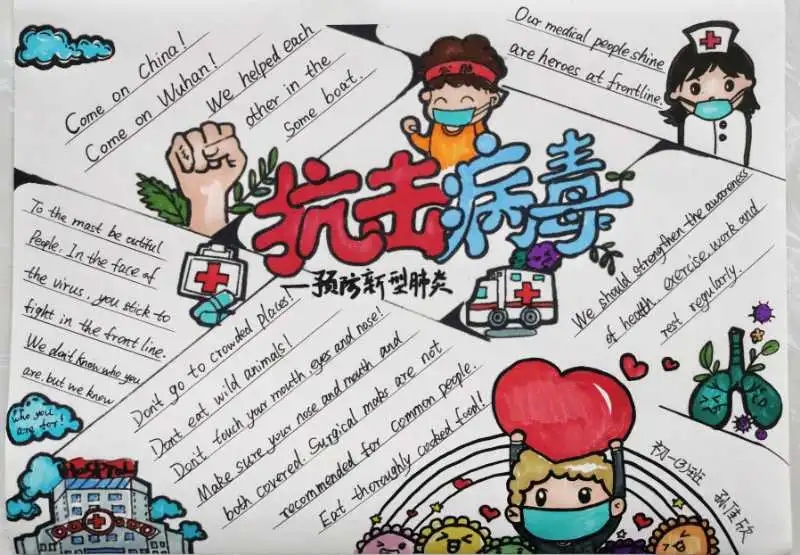 Come on China!
Come on Wuhan!
We helped each
other in the
Some boat.
Our medical people shine
are heroes at frontline.
抗击病毒
一预防新型肺炎
To the mast be autiful
People. In the face of
the virus, you stick to
fight in the front line.
We don't know who you
are. but we knew
who you
are for!
Don't go to crowded places!
Don't eat wild animals!
Don't touch your mouth, eyes and nose!
Make sure your nose and mouth and
both covered. Surgical maks are not
recommended for common people.
Eat thoroughly cooked food!
We should strengthen the awareness
of health, exercise, work and
rest regularly.
Hospital
初一③班